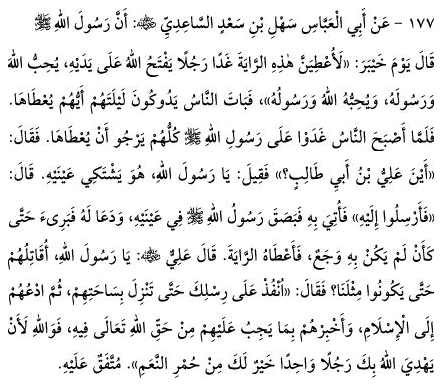 ١٧٧ - عَنْ أَبِي الْعَبَّاسِ سَهْلِ بْنِ سَعْدٍ السَّاعِدِيِّ ﵁: أَنَّ رَسُولَ اللهِ ﷺ
قَالَ يَوْمَ خَيْبَرَ: «لَأُعْطِيَنَّ هٰذِهِ الرَّايَةَ غَدًا رَجُلًا يَفْتَحُ اللهُ عَلَى يَدَيْهِ، يُحِبُّ اللهَ
وَرَسُولَهُ، وَيُحِبُّهُ اللهُ وَرَسُولُهُ»، فَبَاتَ النَّاسُ يَدُوكُونَ لَيْلَتَهُمْ أَيُّهُمْ يُعْطَاهَا.
فَلَمَّا أَصْبَحَ النَّاسُ غَدَوْا عَلَى رَسُولِ اللهِ ﷺ كُلُّهُمْ يَرْجُو أَنْ يُعْطَاهَا. فَقَالَ:
«أَيْنَ عَلِيُّ بْنُ أَبِي طَالِبٍ؟» فَقِيلَ: يَا رَسُولَ اللهِ، هُوَ يَشْتَكِي عَيْنَيْهِ. قَالَ:
«فَأَرْسِلُوا إِلَيْهِ» فَأُتِيَ بِهِ فَبَصَقَ رَسُولُ اللهِ ﷺ فِي عَيْنَيْهِ، وَدَعَا لَهُ فَبَرِىءَ حَتَّى
كَأَنْ لَمْ يَكُنْ بِهِ وَجَعٌ، فَأَعْطَاهُ الرَّايَةَ. قَالَ عَلِيٌّ ﵁: يَا رَسُولَ اللهِ، أُقَاتِلُهُمْ
حَتَّى يَكُونُوا مِثْلَنَا؟ فَقَالَ: «اُنْفُذْ عَلَى رِسْلِكَ حَتَّى تَنْزِلَ بِسَاحَتِهِمْ، ثُمَّ ادْعُهُمْ
إِلَى الْإِسْلَامِ، وَأَخْبِرْهُمْ بِمَا يَجِبُ عَلَيْهِمْ مِنْ حَقِّ اللهِ تَعَالَى فِيهِ، فَوَاللهِ لَأَنْ
يَهْدِيَ اللهُ بِكَ رَجُلًا وَاحِدًا خَيْرٌ لَكَ مِنْ حُمْرِ النَّعَمِ». مُتَّفَقٌ عَلَيْهِ.